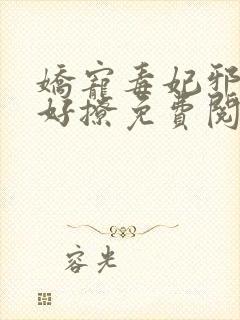 嬌寵毒妃邪
好撩免費閱
容光